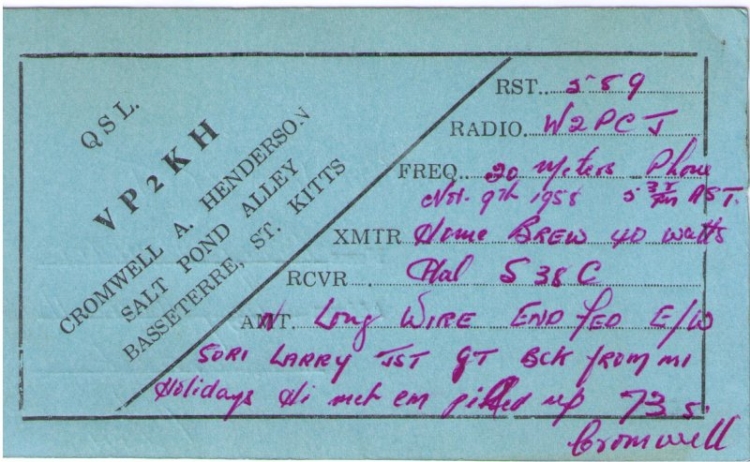 QSL.
VP2KH
CROMWELL A. HENDERSON
SALT POND ALLEY
BASSETERRE, ST. KITTS
RST.. 559
RADIO. W2PCJ
FREQ.. 20 Meters Phone
Nov. 9th 1955 5 35 PM AST.
XMTR Home BREW 40 watts
RCVR... Hal S38C
ANT. Long WIRE END FED E/W
SORI LARRY JST GT BCK from mi
Holidays Hi met em piled up 73 s.
Cromwell